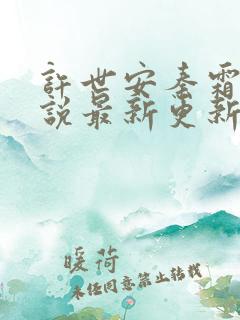 許世安秦霜
說最新更新
暖荷
未经同意禁止转载